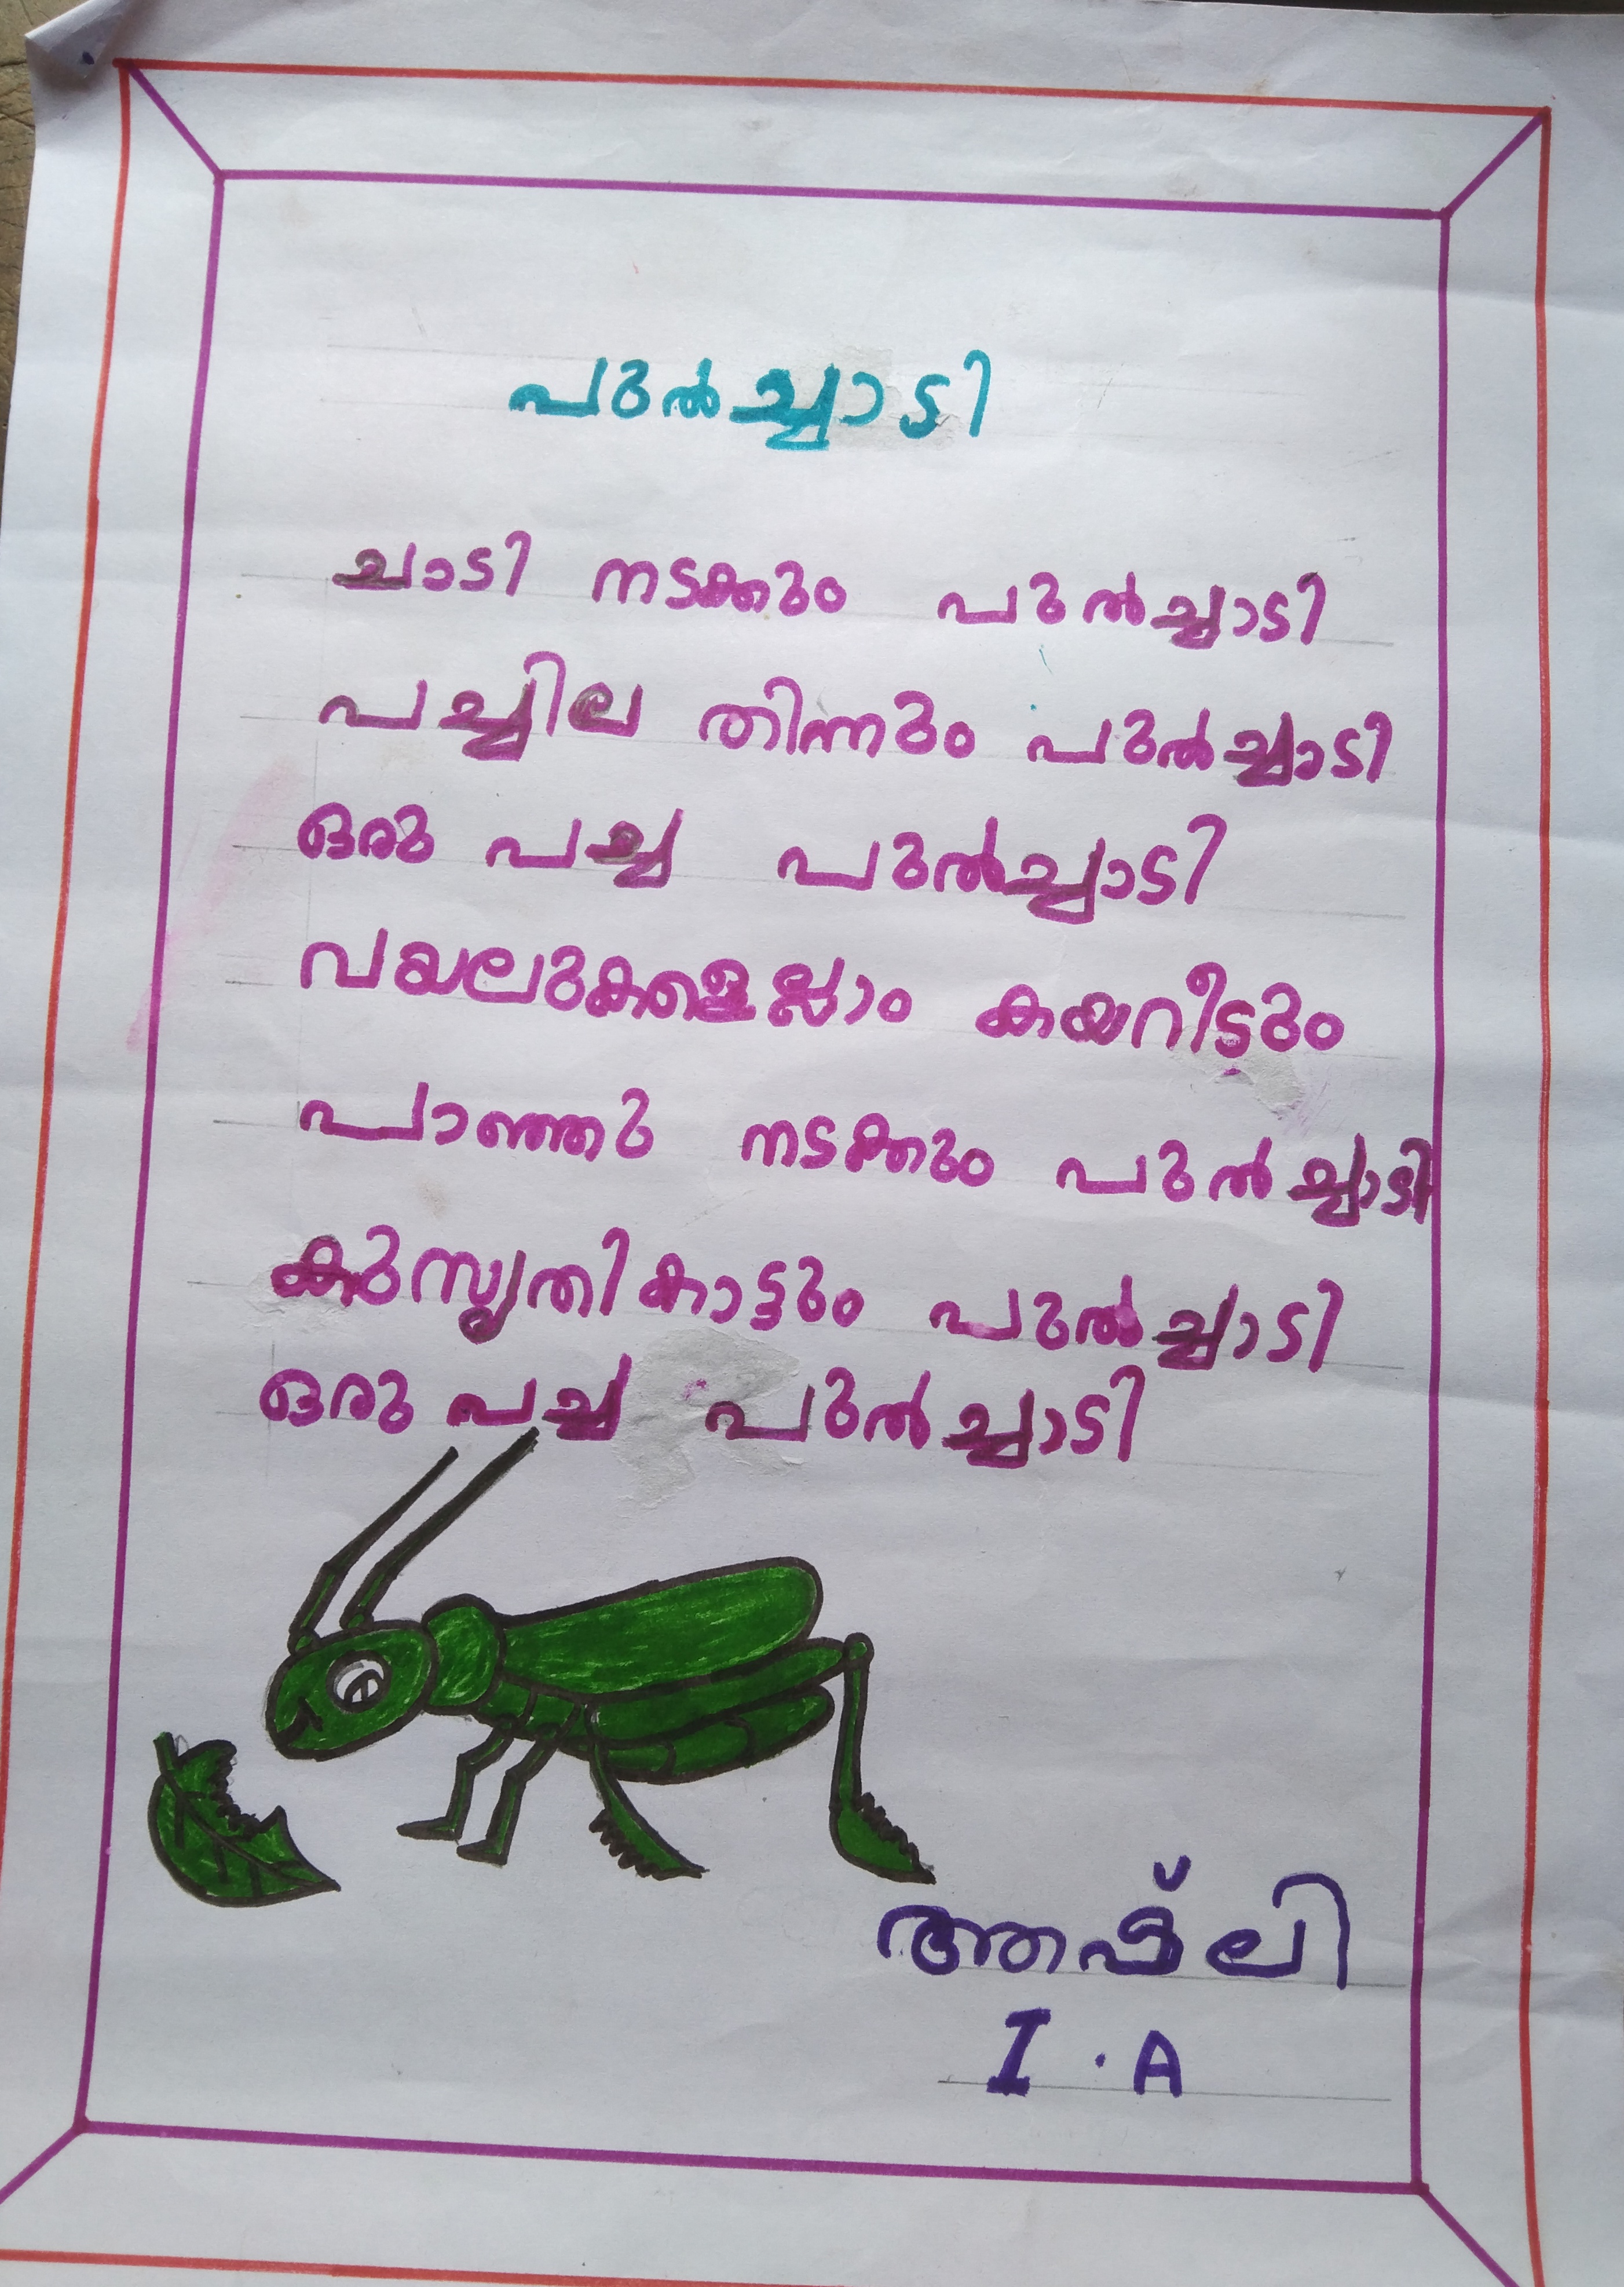 പുൽച്ചാടി
ചാടി നടക്കും പുൽച്ചാടി
പച്ചില തിന്നും പുൽച്ചാടി
ഒരു പച്ച പുൽച്ചാടി
വയലുകളെല്ലാം കയറീടും
പാഞ്ഞു നടക്കും പുൽച്ചാടി
കുസൃതികാട്ടും പുൽച്ചാടി
ഒരു പച്ച പുൽച്ചാടി
അഷ്ലി
I . A